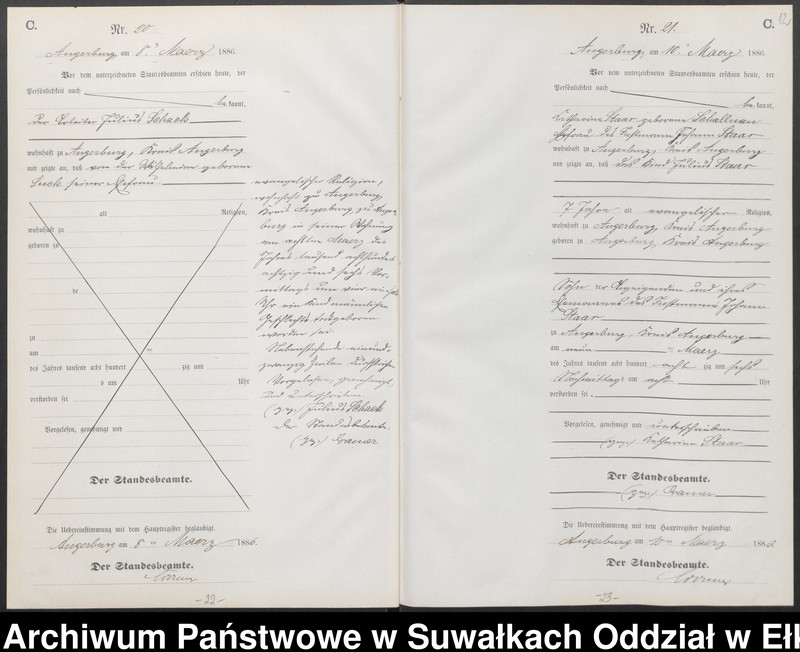 C.
Nr. 20
Angerburg am 8. Maerz 1886.
Vor dem unterzeichneten Standesbeamten erschien heute, der
Persönlichkeit nach
be kannt,
der Arbeiter Julius Schack
wohnhaft zu Angerburg, Kreis Angerburg
und zeigte an, daß von der Wilhelmine geborenen
seiner Ehefrau
evangelischer Religion,
wohnhaft zu Angerburg,
Kreis Angerburg, zu Anger-
burg in seiner Wohnung
am achten Maerz des
Jahres tausend achthundert
achtzig und sechs Vor-
mittags um vier
Uhr ein Kind männlichen
Geschlechts todtgeboren
worden sei.
Nebenstehende
zwanzig Zeilen
Vorgelesen, genehmigt
und unterschrieben
(gez.) Julius Schack
Der Standesbeamte.
(gez.) Cramer
alt Religion,
wohnhaft zu
geboren zu
de
zu
am ten
des Jahres tausend acht hundert zig und
s um Uhr
verstorben sei
Vorgelesen, genehmigt und
Der Standesbeamte.
Die Uebereinstimmung mit dem Hauptregister beglaubigt.
Angerburg am 8 ten Maerz 1886.
Der Standesbeamte.
Cramer
-22-
Nr. 21.
C.
12
Angerburg, am 10. Maerz 1886.
Vor dem unterzeichneten Standesbeamten erschien heute, der
Persönlichkeit nach
be kannt,
Katharine Staar geborene
Ehefrau des Johann Staar
wohnhaft zu Angerburg, Kreis Angerburg
und zeigte an, daß das Kind Julius Staar
7 Jahre alt evangelischer Religion,
wohnhaft zu Angerburg Kreis Angerburg
geboren zu Angerburg, Kreis Angerburg
Sohn der Anzeigenden und ihres
Ehemannes des Johann
Staar
zu Angerburg, Kreis Angerburg
am neun ten Maerz
des Jahres tausend acht hundert acht zig und sechs
Nachmittags um acht Uhr
verstorben sei.
Vorgelesen, genehmigt und unterschrieben
(gez.) Katharine Staar
Der Standesbeamte.
(gez.) Cramer
Die Uebereinstimmung mit dem Hauptregister beglaubigt.
Angerburg am 10 ten Maerz 1886
Der Standesbeamte.
Cramer
-23-
Archiwum Państwowe w Suwałkach Oddział w Ełk